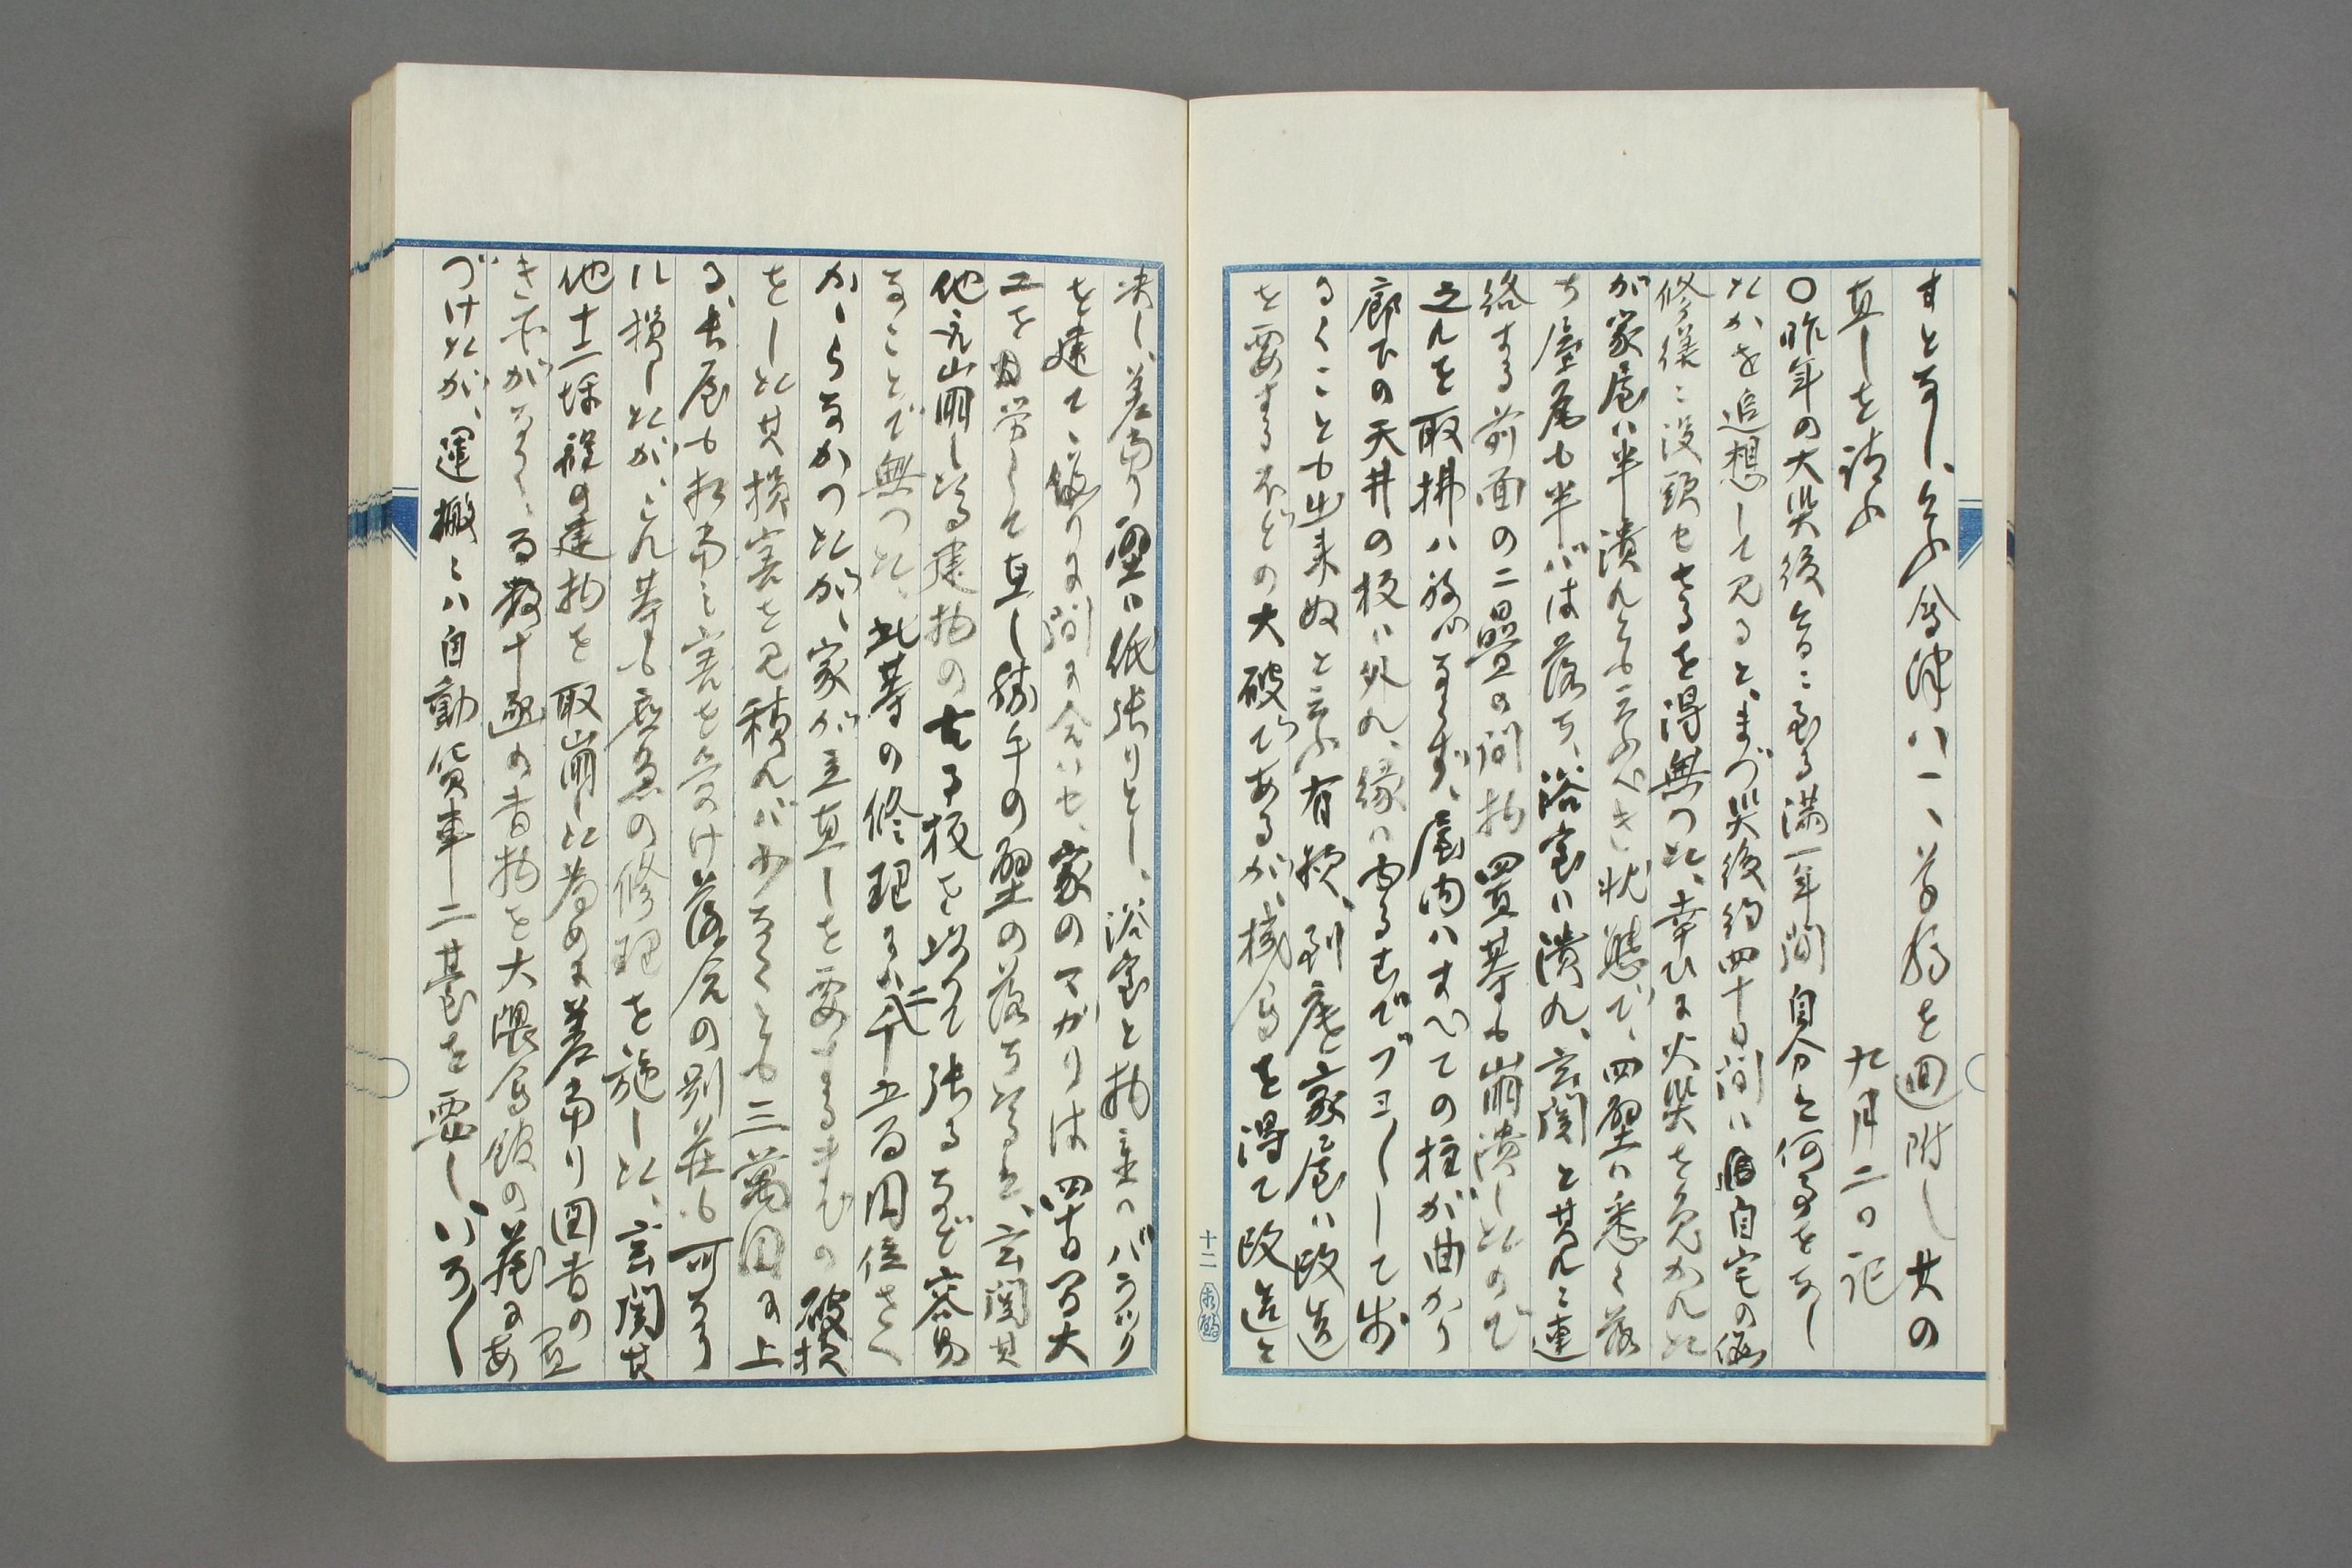 すと云ふ会津八一、草稿を回附し其の
直しを請ふ　九月二日記
〇昨年の大災後今日ニ至る満一年間自分は何事をなし
たかを追想して見ると、まづ災後約四十日間ハ自宅の
修繕ニ没頭せざるを得無つた、幸ひに火災を免かれた
が家屋ハ半潰れとも云ふべき状態で、四壁ハ悉く落
ち屋尾も半ばは落ち、浴室ハ潰れ、玄関と其れニ連
絡する前面の二畳の間 四畳 も崩潰したので
之れを取拂ハねバならず、屋内ハすべての柱が曲がり
廊下の天井の板ハ外れ、縁ハ して歩
るくことも出来ぬと云ふ有様、到底家屋ハ改造
を要するほどの大破であるが、機会を得て改造と
決し、差当り壁ハ紙張りとし、浴室と物置ハバラック
を建て、仮りに間に合ハせ、家のマガリは四十日間大
工を労して直し勝手の壁の落ちたると、玄関其
他之崩したる建物の古る板を以て張るなど容易
なことで無つた、此等の修理にハ二千五百円位さく
かゝらなかつたが、家が立直しを要するまでの破損
をした其損害を見積れバ少なくとも三萬円に上
る、長屋も相当ニ害を受け落合の別荘も可なり
ハ損したが、これ等も応急の修理を施した、玄関其
他十二坪程の建物を取崩した為めに差当り図書の置
き所がなく、百数十函の書物を大隈会館の蔵にあ
づけたが、運搬ニハ自動貨車二台を要し、いろ〱
十二